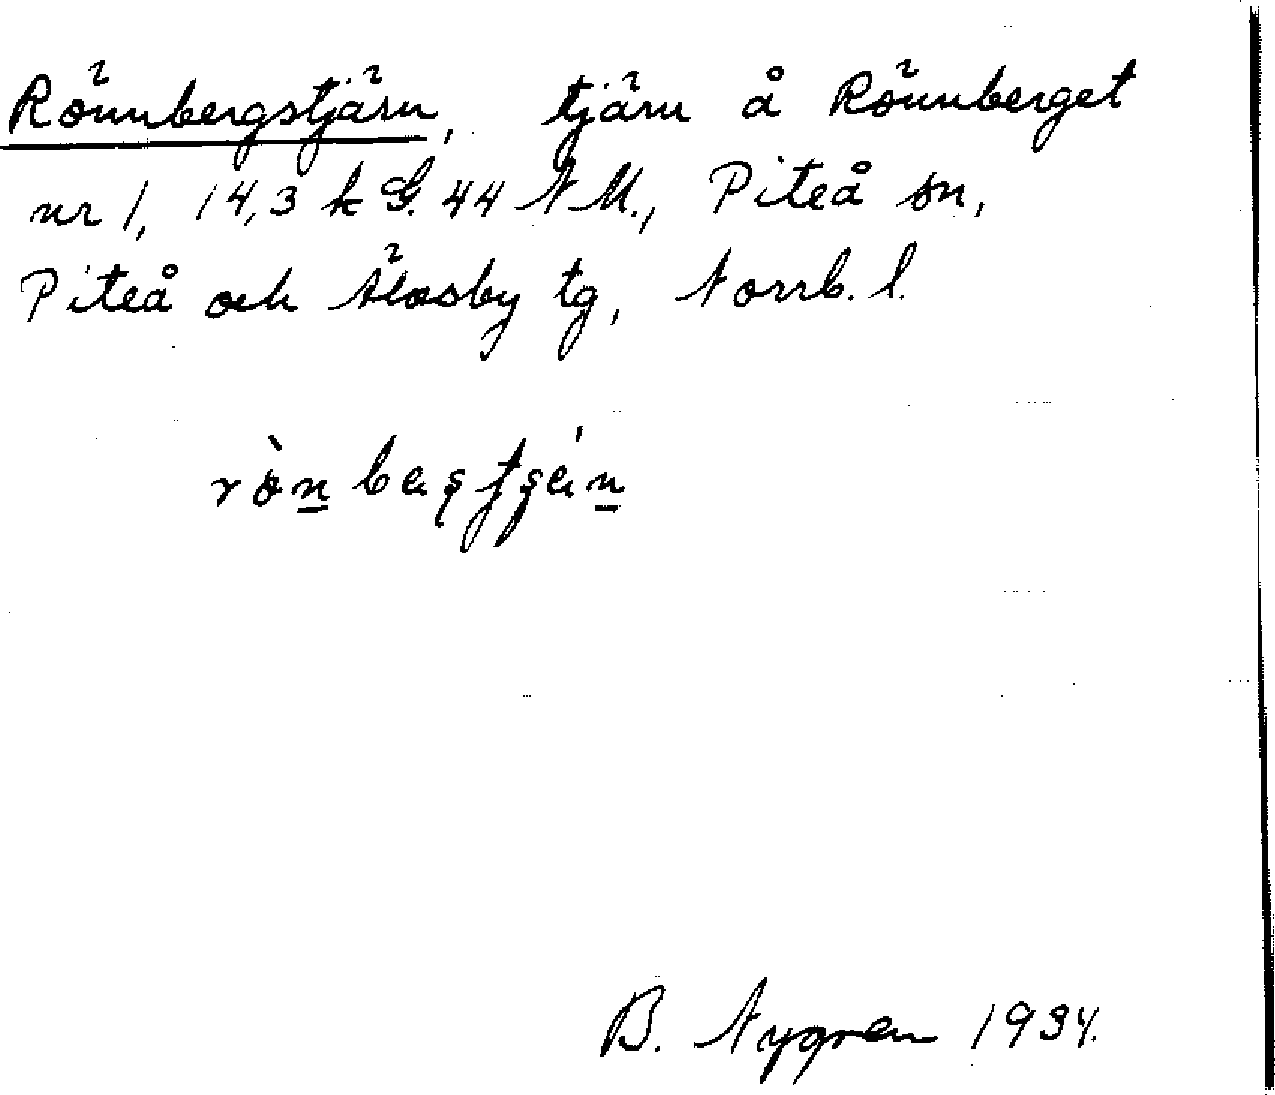 Rönnbergstjärn, tjärn å Rönnberget
nr 1, 14,3 k G. 44 N M., Piteå sn,
Piteå och Älvsby tg, Norrb. l.
B. Nygren 1934.